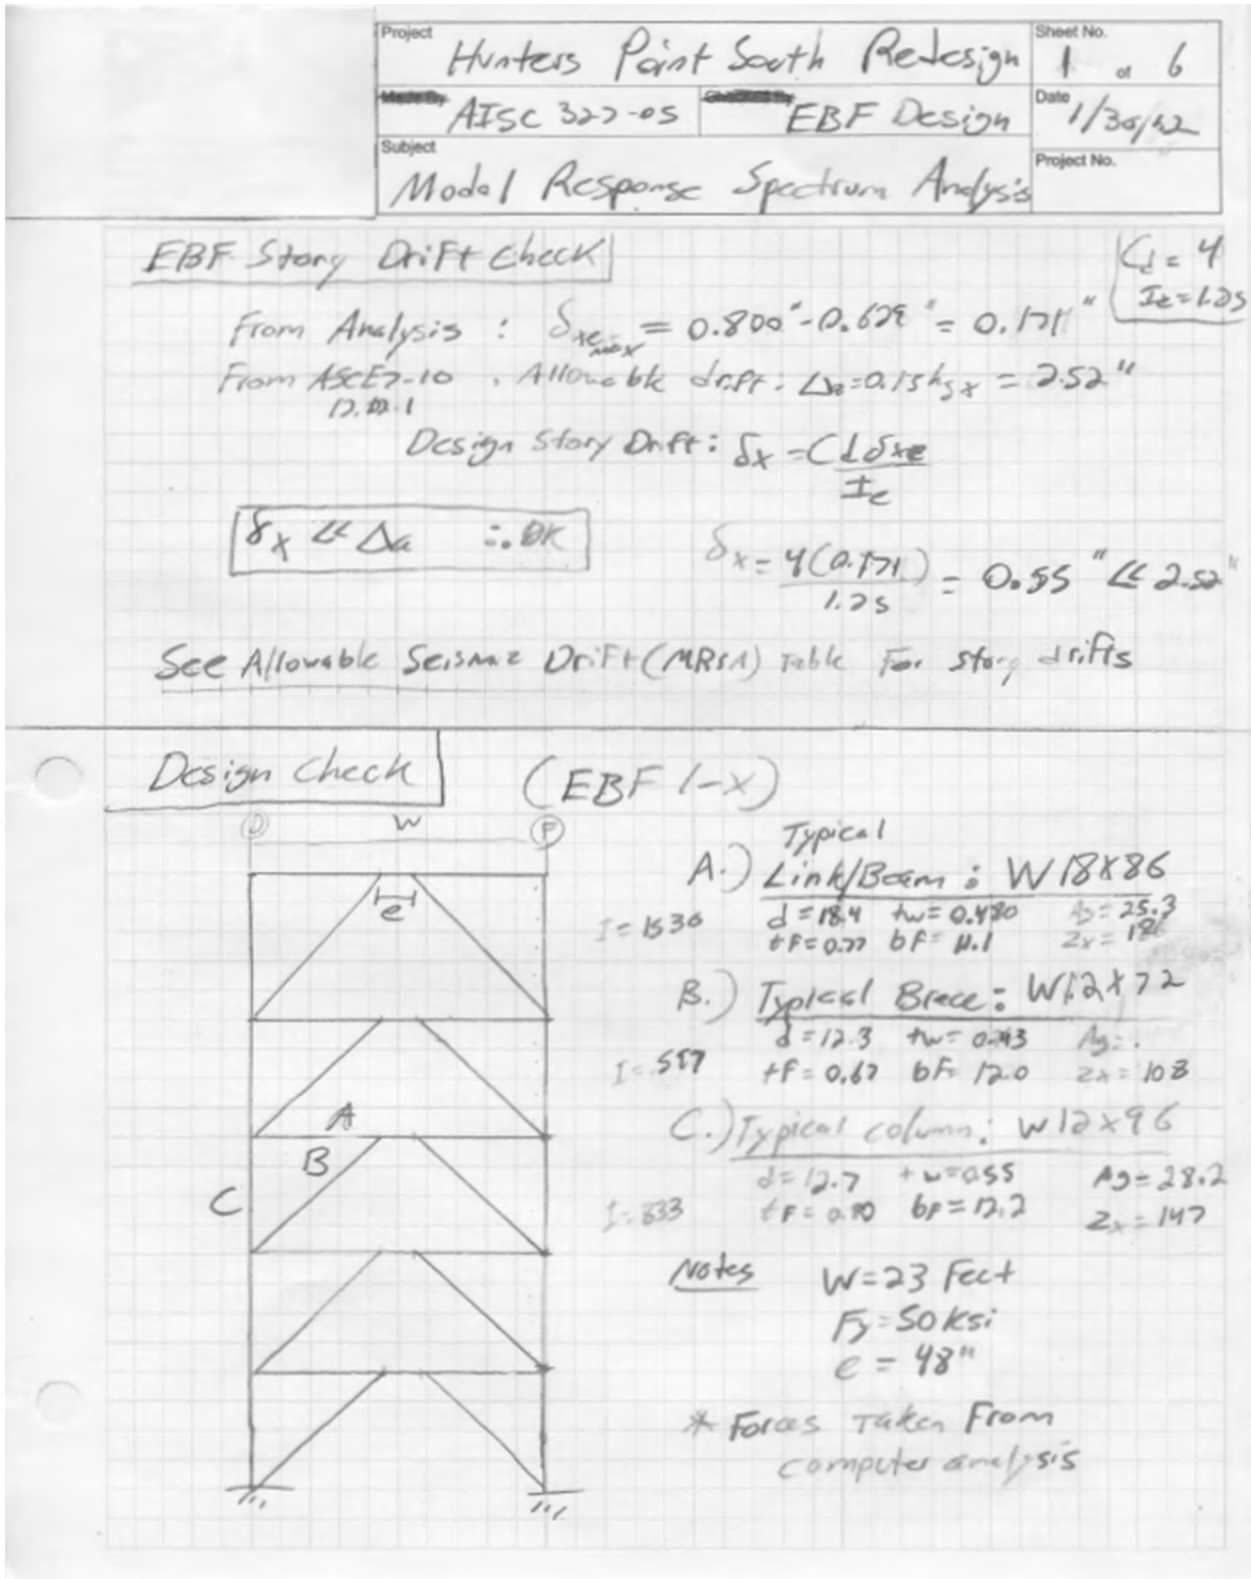 Project
Hunters Point South Redesign
Sheet No.
1 of 6
AISC 327-05
EBF Design
Date
Subject
Modal Response Spectrum Analysis
Project No.
EBF Story Drift Check
Cd = 4
Ie = 1.25
From Analysis : δxe max = 0.800" - 0.629" = 0.171"
From ASCE7-10 . Allowable drift: Δa = 0.15hsx = 2.52"
12.12.1
Design Story Drift: δx = Cd δxe
Ie
δx << Δa ∴ OK
δx = 4(0.171) = 0.55" << 2.52"
1.25
See Allowable Seismic Drift (MRSA) Table For story drifts
Design Check
(EBF 1-X)
D W F
e
A
B
C
Typical
A.) Link/Beam : W18X86
d = 18.4 tw = 0.480 Ag = 25.3
I = 1530
tF = 0.77 bF = 11.1 Zx = 186
B.) Typical Brace: W12X72
d = 12.3 tw = Ag =
I = 597
tF = 0.67 bF = 12.0 Zx = 108
C.) Typical column: W12x96
d = 12.7 tw = 0.55 Ag = 28.2
I = 833
tF = 0.90 bF = 12.2 Zx = 147
Notes
W = 23 Feet
Fy = 50 ksi
e = 48"
* Forces Taken From
computer analysis